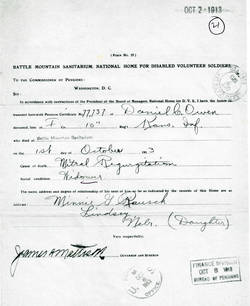 OCT 2 - 1913
(Form No. 19)
BATTLE MOUNTAIN SANITARIUM, NATIONAL HOME FOR DISABLED VOLUNTEER SOLDIERS
To the COMMISSIONER OF PENSIONS:
WASHINGTON, D. C.
Sir:
In accordance with instructions of the President of the Board of Managers, National Home for D. V. S., I have the honor to
transmit herewith Pension Certificate No. Daniel C. Owen
10" Kans. Inf.
who died at Battle Mountain Sanitarium
on the 1st day of October
Cause of death Mitral Regurgitation
Social condition Widower
The name, address and degree of relationship of his next of kin as indicated by the records of this Home are as
follows: Minnie G. Rausch
Lindsey
Nebr. (Daughter)
Very respectfully,
GOVERNOR AND SURGEON
FINANCE DIVISION
OCT 8 1913
BUREAU OF PENSIONS